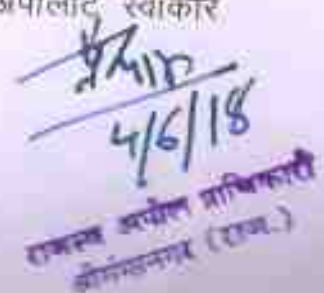 अपीलांट स्वीकार
4/6/18
राजस्व अपील प्राधिकारी
श्रीगंगानगर (राज.)